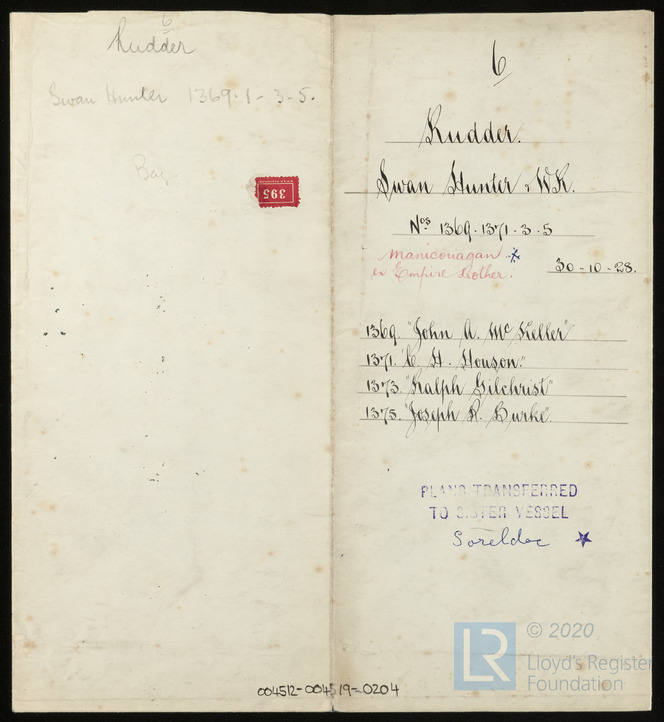 6
Rudder
Swan Hunter 1369 · 1 - 3 - 5.
Bag
395
6
Rudder.
Swan Hunter & WR.
Nos 1369 · 1371 · 3 · 5
Manicouagan *
ex Empire Rother.
30 - 10 - 28.
1369. "John A. McKellar"
1371. "C. H. Houson."
1373. "Ralph Gilchrist"
1375. "Joseph R. Burke".
PLANS TRANSFERRED
TO SISTER VESSEL
Soreldoc
004512-004519-0204
© 2020
LR
Lloyd's Register
Foundation